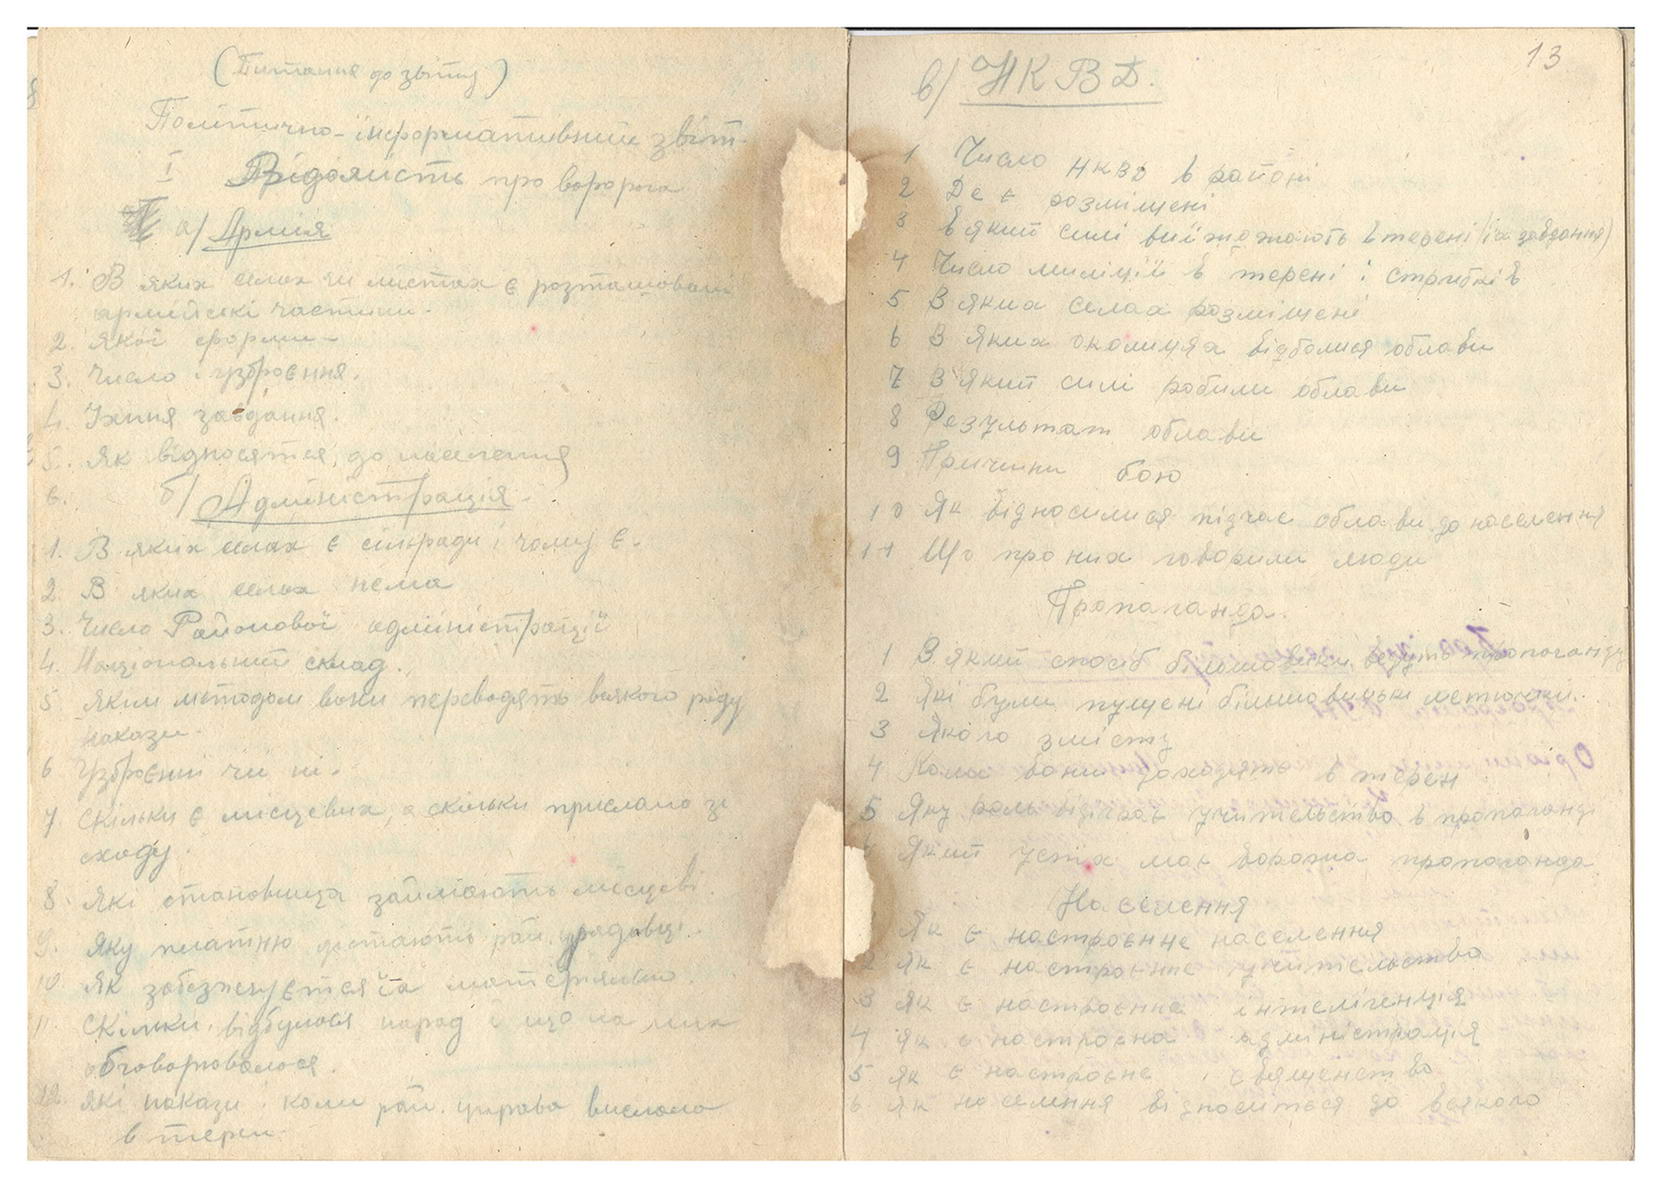 (Питання до звіту)
Політично-інформативний звіт.
I Відомість про ворога
а/ Армія
1. В яких селах чи містах є розташовані
армійські частини.
2. Якої форми
3. Число і узброєння.
4. Їхня завдання.
5. Як відносятся до населення
6. б/ Адміністрація.
1. В яких селах є сільради і чому є.
2. В яких селах нема
3. Число Районової адміністрації
4. Національний склад.
5 Яким методом вони переводять всякого роду
накази.
6 Узброєний чи ні.
7. Скільки є місцевих, а скільки прислано зі
сходу.
8. Які становища займають місцеві.
9. Яку платню дістають рай. урядовці.
10 Як забезпечується їх матеріяльно.
11. Скільки відбулося нарад і що на них
обговорювалося.
12. Які накази і коли рай. управа вислала
в терен.
13
в/ НКВД.
1 Число НКВД в районі
2 Де є розміщені
3 В якій силі виїжджають в терені (їх завдання)
4 Число міліції в терені і стрибків
5 В яких селах розміщені
6 В яких околицях відбулися облави
7 В якій силі робили облави
8 Результат облави
9 Причини бою
10 Як відносилися підчас облави до населення
11 Що про них говорили люди
Пропаганда.
1 В який спосіб большовики ведуть пропоганду
2 Які були пущені більшовицькі летючки.
3 Якого змісту
4 Коли вони доходять в терен
5 Яку роль відіграє учительство в пропоганді
Який успіх має ворожа пропоганда
Населення
Як є настроєнне населення
2 Як є настроєнне учительство
3 Як є настроєнна інтелігенція
4 Як є настроєна адміністрація
5 Як є настроєне священство
6 Як населення відноситься до всякого